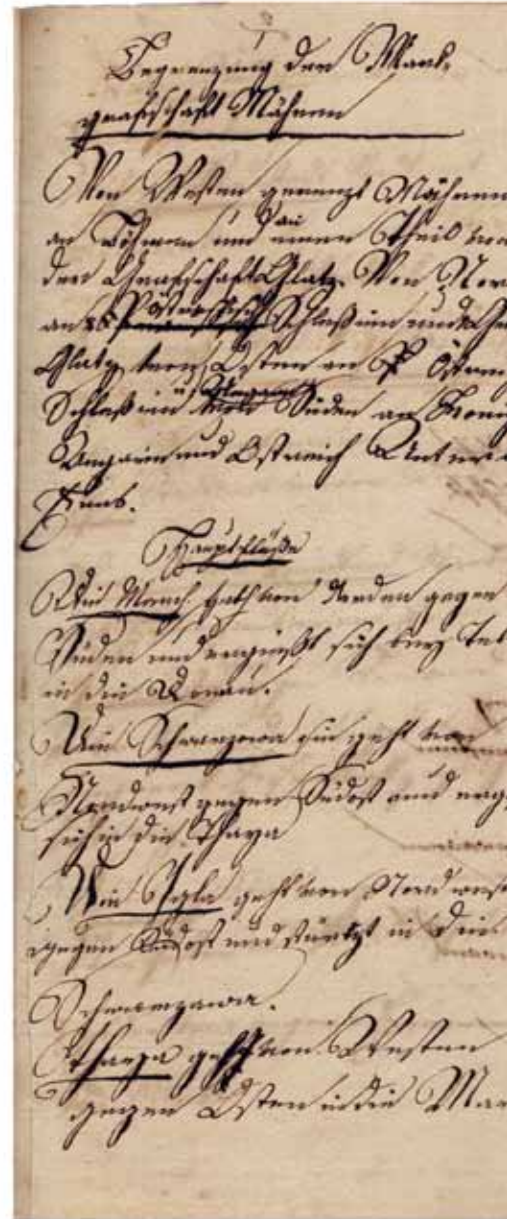 1
Begrenzung der Mark-
grafschaft Mähren
Von Westen grenzt Mähren
an Böhmen und an einen Theil
der Grafschaft Glatz. Von
an Östreichisch Schlesien und
Glatz, von Osten an
Schlesien u Ungarn Süden an
Ungarn und Östreich Unter
Enns.
Hauptflüße
Die March geht von Norden gegen
Süden und ergießt sich bey
in die Donau.
Die Schwarzawa sie geht von
Nordwest gegen Südost und
sich in die Thaya
Die Igla geht von Nordwest
gegen Südost und stürtzt in die
Schwarzawa.
Thaya geht von Westen
gegen Osten in die